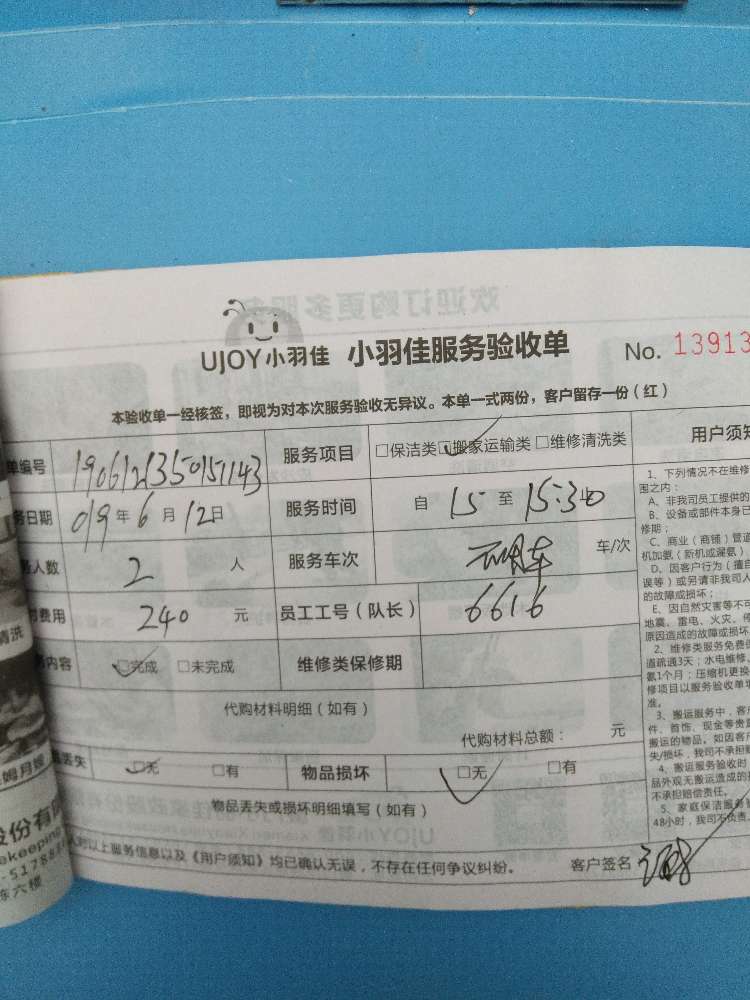 UJOY小羽佳 小羽佳服务验收单 No. 13913
本验收单一经核签，即视为对本次服务验收无异议。本单一式两份，客户留存一份（红）
单编号 1906121350151143 服务项目 □保洁类 □搬家运输类 □维修清洗类 用户须知
务日期 019年6月12日 服务时间 自 15 至 15:30
人数 2 人 服务车次 车/次
费用 240 元 员工工号（队长） 6616
内容 □完成 □未完成 维修类保修期
代购材料明细（如有）
代购材料总额： 元
丢失 □无 □有 物品损坏 □无 □有
物品丢失或损坏明细填写（如有）
对以上服务信息以及《用户须知》均已确认无误，不存在任何争议纠纷。 客户签名
1、下列情况不在维修
围之内：
A、非我司员工提供的
B、设备或部件本身已
修期；
C、商业（商铺）管道
机加氨（新机或漏氨）
D、因客户行为（擅自
误等）或另请非我司人
的故障或损坏；
E、因自然灾害等不可
地震、雷电、火灾、停
原因造成的故障或损坏
2、维修类服务免费保
道疏通3天；水电维修、
氨1个月；压缩机更换
修项目以服务验收单填
准。
3、搬运服务中，客户
件、首饰、现金等贵重
搬运的物品。如因客户
失/损坏，我司不承担赔
4、搬运服务验收时
品外观无搬运造成的损
不承担赔偿责任。
5、家庭保洁服务
48小时，我司不负责
清洗
姆月嫂
股份有限
ekeeping
-5178831
东六楼